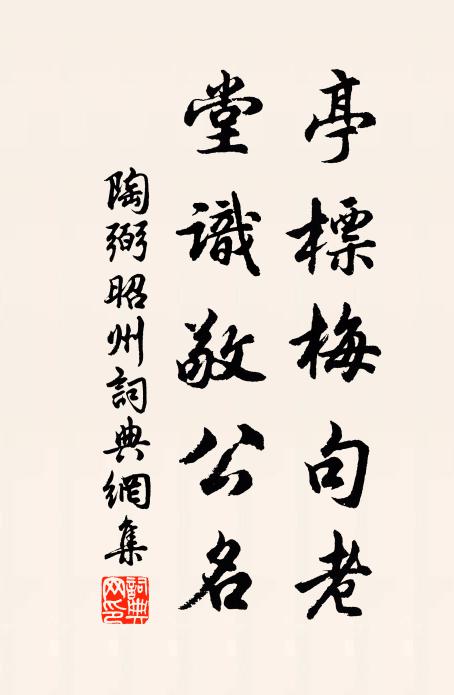 亭標梅句老
堂識敬公名
陶弼昭州詞典網集
詞典網印